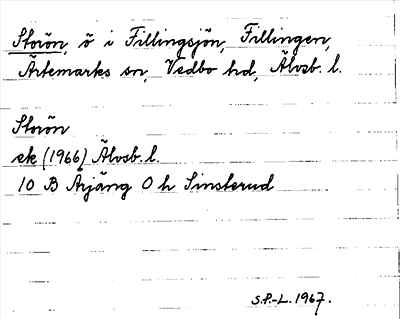 Storön, ö i Fillingsjön, Fillingen,
Ärtemarks sn, Vedbo hd, Älvsb. l.
Storön
ek (1966) Älvsb. l.
10 B Årjäng O h Sinsterud
S.P.-L. 1967.